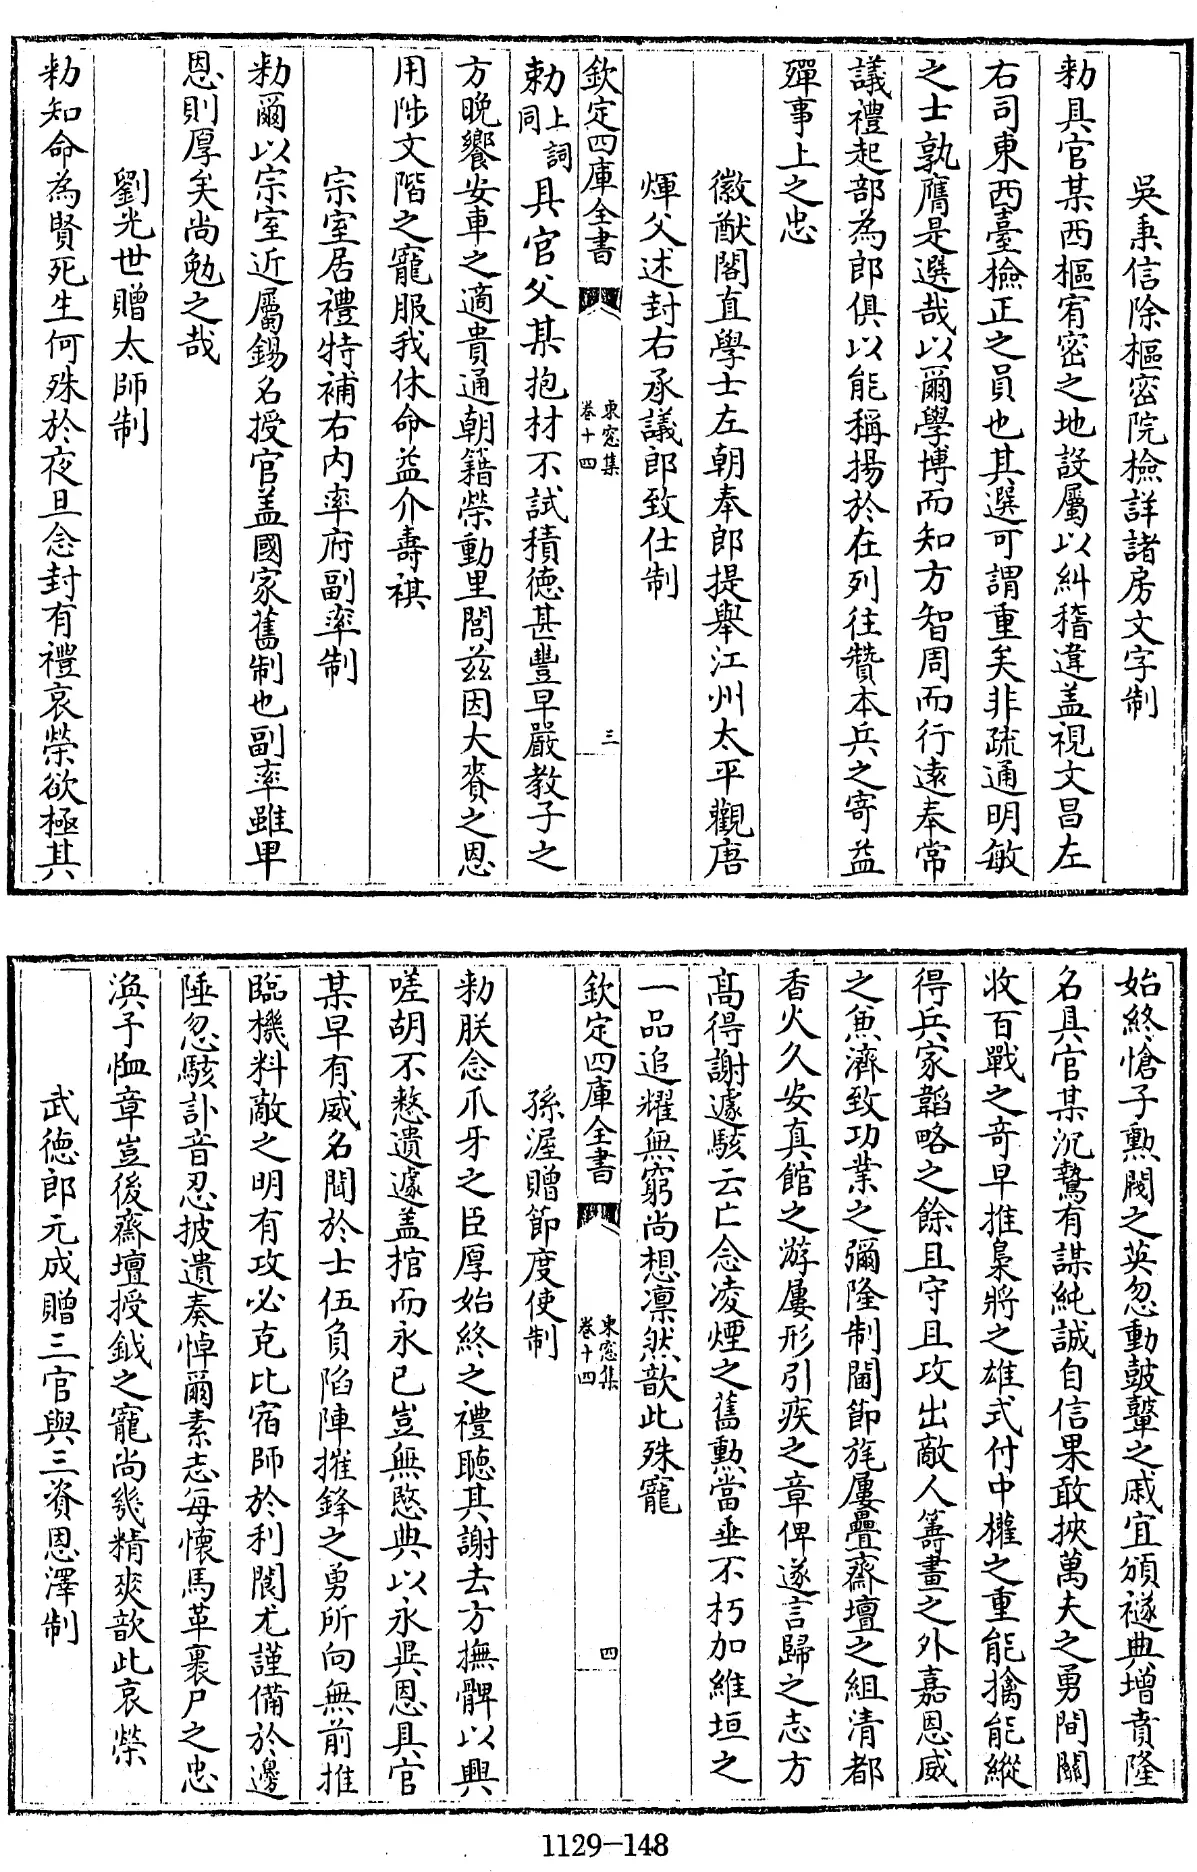 吳秉信除樞密院檢詳諸房文字制
勑具官某西樞宥密之地設屬以糾稽違蓋視文昌左
右司東西臺檢正之員也其選可謂重矣非疏通明敏
之士孰膺是選哉以爾學博而知方智周而行遠奉常
議禮起部為郎俱以能稱揚於在列往贊本兵之寄益
殫事上之忠
徽猷閣直學士左朝奉郎提舉江州太平觀唐
煇父述封右承議郎致仕制
欽定四庫全書
東窓集
卷十四
三
勑上詞同具官父某抱材不試積徳甚豐早嚴教子之
方晚饗安車之適貴通朝籍榮動里閭兹因大賚之恩
用陟文階之寵服我休命益介壽祺
宗室居禮特補右内率府副率制
勑爾以宗室近屬錫名授官蓋國家舊制也副率雖卑
恩則厚矣尚勉之哉
劉光世贈太師制
勑知命為賢死生何殊於夜旦念封有禮哀榮欲極其
始終愴予勲閥之英忽動鼓鼙之戚宜頒襚典增賁隆
名具官某沉鷙有謀純誠自信果敢挾萬夫之勇間關
收百戰之竒早推梟將之雄式付中權之重能擒能縱
得兵家韜略之餘且守且攻出敵人籌畫之外嘉恩威
之兼濟致功業之彌隆制閫節旄屢疊齋壇之組清都
香火久安真館之游屢形引疾之章俾遂言歸之志方
髙得謝遽駭云亡念凌煙之舊勲當垂不朽加維垣之
一品追耀無窮尚想凛然歆此殊寵
欽定四庫全書
東窓集
卷十四
四
孫渥贈節度使制
勑朕念爪牙之臣厚始終之禮聽其謝去方撫髀以興
嗟胡不憖遺遽蓋棺而永已豈無愍典以永異恩具官
某早有威名聞於士伍負陷陣摧鋒之勇所向無前推
臨機料敵之明有攻必克比宿師於利閬尤謹備於邊
陲忽駭訃音忍披遺奏悼爾素志每懐馬革裹尸之忠
渙予恤章豈後齋壇授鉞之寵尚幾精爽歆此哀榮
武徳郎元成贈三官與三資恩澤制
1129-148